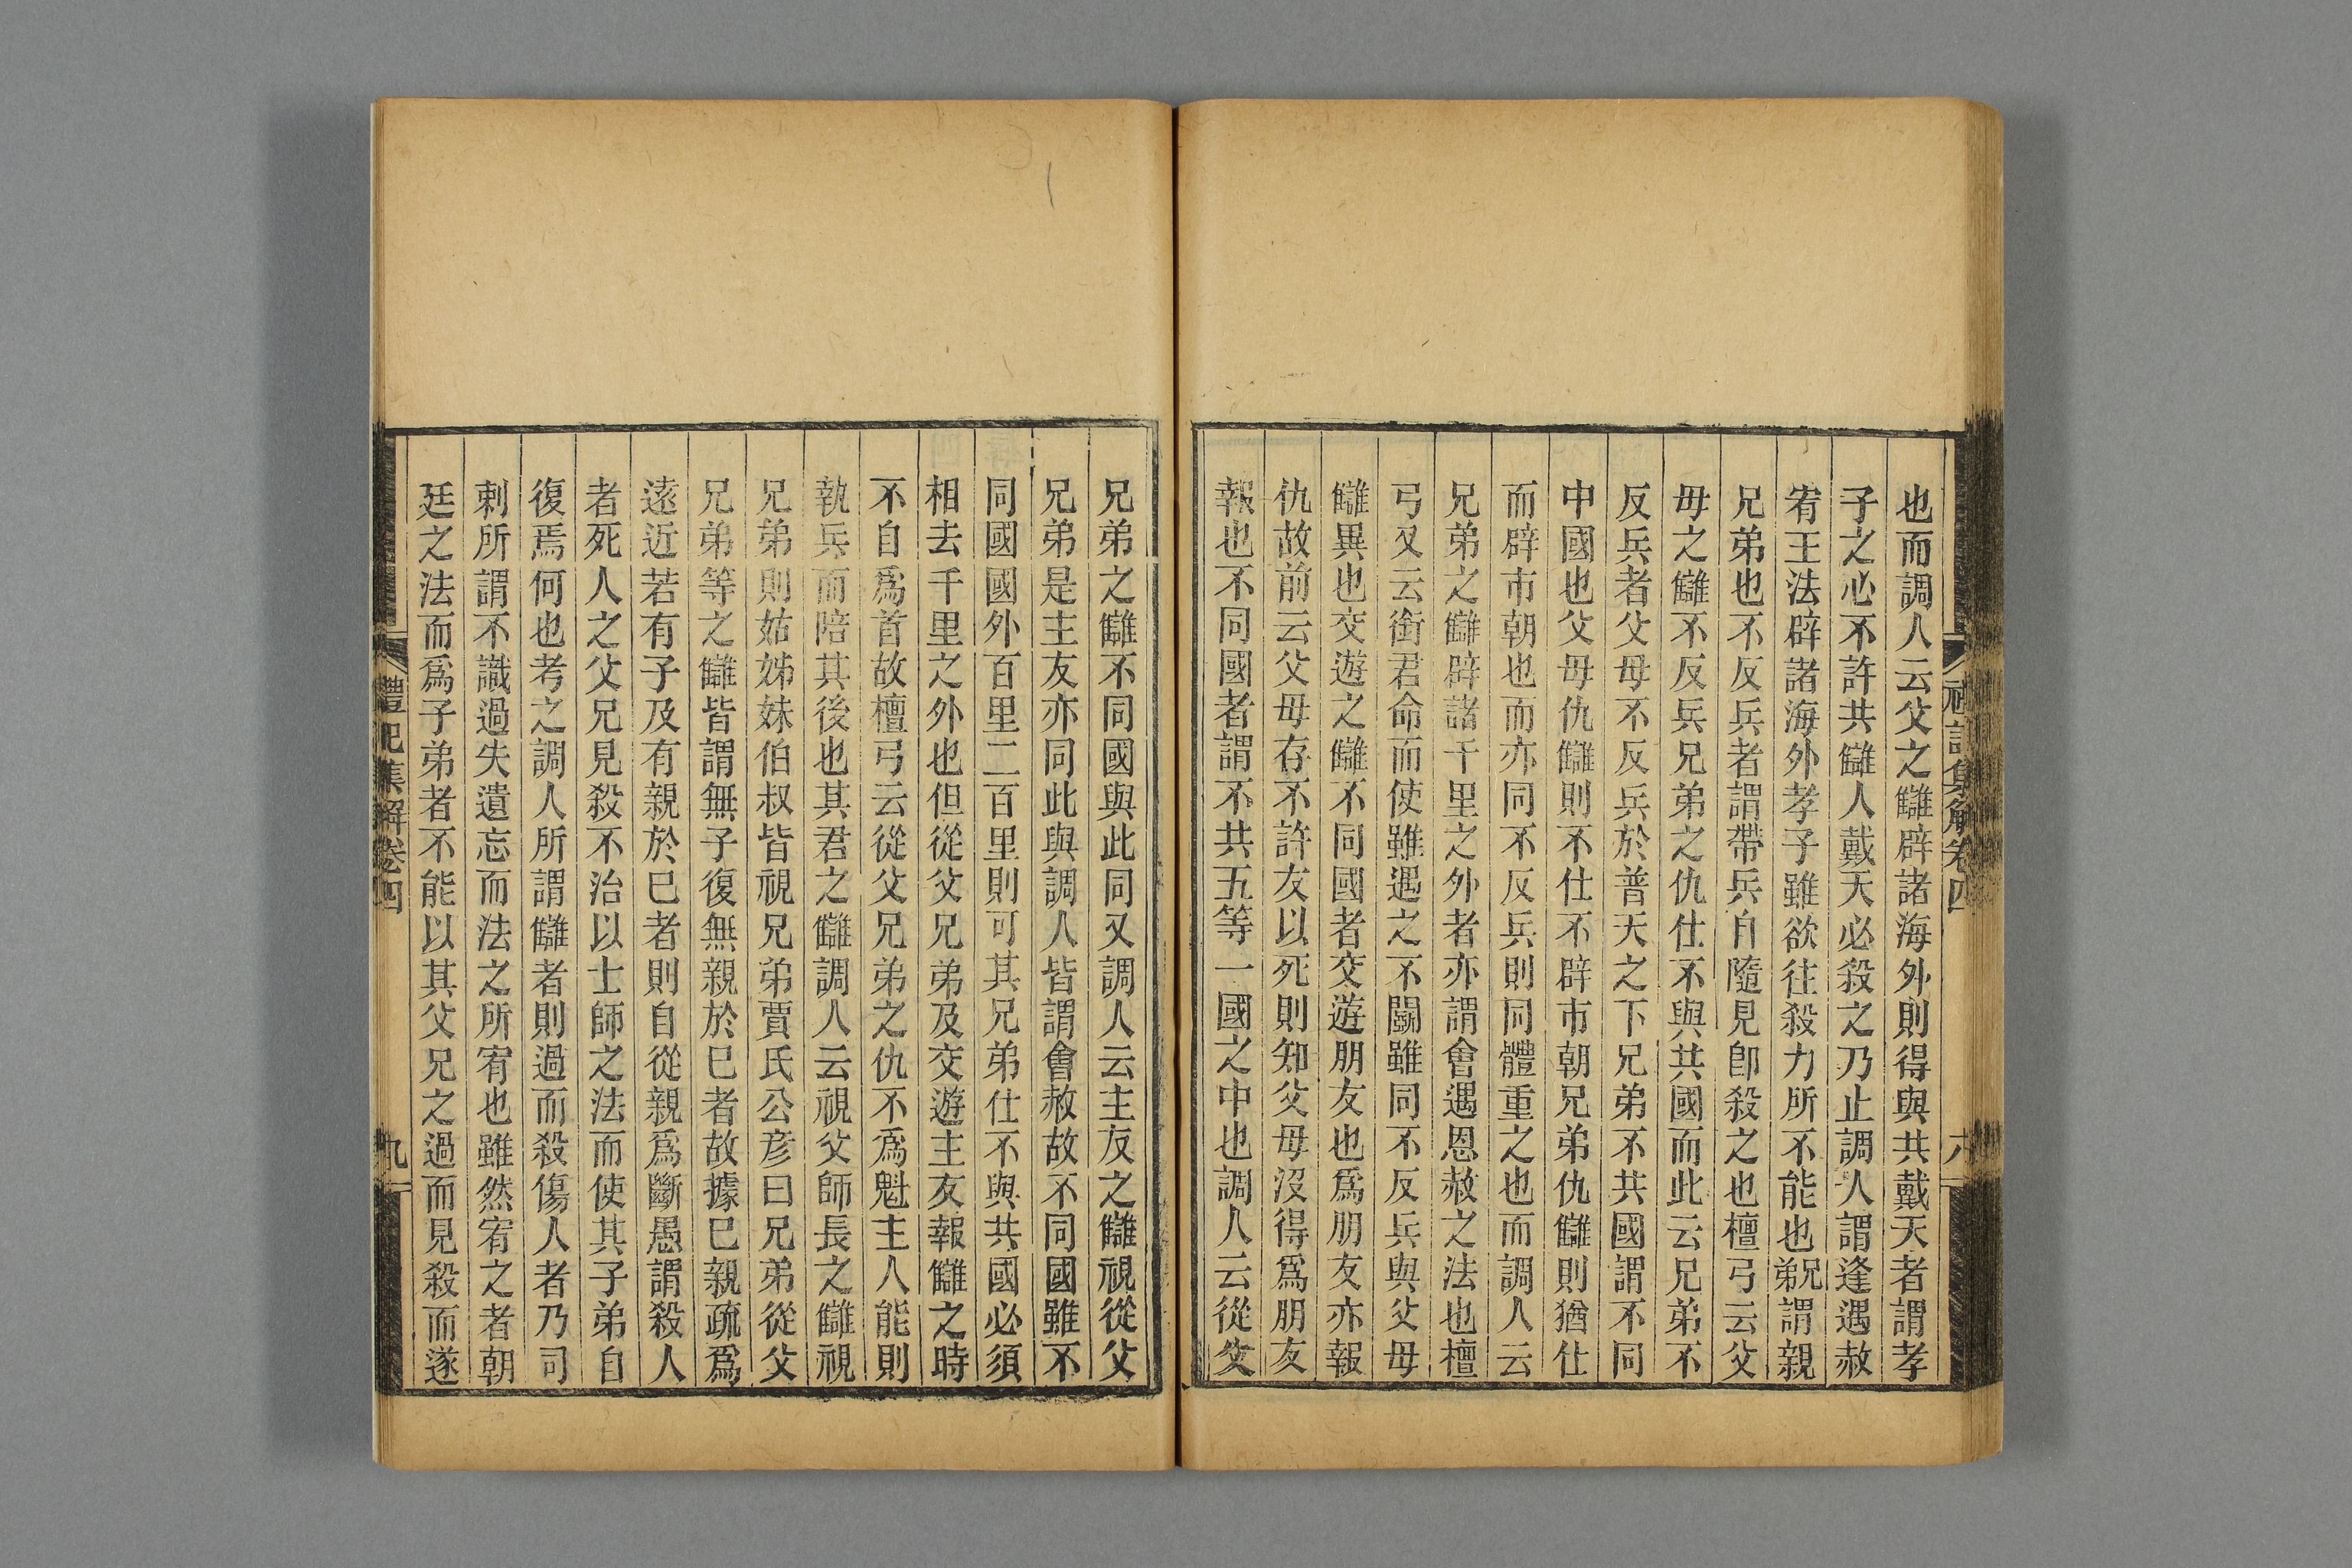 禮記集解卷四
也而調人云父之讎辟諸海外則得與共戴天者謂孝
子之心不許共讎人戴天必殺之乃止調人謂逢遇赦
宥王法辟諸海外孝子雖欲往殺力所不能也兄弟謂親
兄弟也不反兵者謂帶兵自隨見卽殺之也檀弓云父
母之讎不反兵兄弟之仇仕不與共國而此云兄弟不
反兵者父母不反兵於普天之下兄弟不共國謂不同
中國也父母仇讎則不仕不辟市朝兄弟仇讎則猶仕
而辟市朝也而亦同不反兵則同體重之也而調人云
兄弟之讎辟諸千里之外者亦謂會遇恩赦之法也檀
弓又云銜君命而使雖遇之不鬭雖同不反兵與父母
讎異也交遊之讎不同國者交遊朋友也爲朋友亦報
仇故前云父母存不許友以死則知父母沒得爲朋友
報也不同國者謂不共五等一國之中也調人云從父
兄弟之讎不同國與此同又調人云主友之讎視從父
兄弟是主友亦同此與調人皆謂會赦故不同國雖不
同國國外百里二百里則可其兄弟仕不與共國必須
相去千里之外也但從父兄弟及交遊主友報讎之時
不自爲首故檀弓云從父兄弟之仇不爲魁主人能則
執兵而陪其後也其君之讎調人云視父師長之讎視
兄弟則姑姊妹伯叔皆視兄弟賈氏公彥曰兄弟從父
兄弟等之讎皆謂無子復無親於已者故據已親疏爲
遠近若有子及有親於已者則自從親爲斷愚謂殺人
者死人之父兄見殺不治以士師之法而使其子弟自
復焉何也考之調人所謂讎者則過而殺傷人者乃司
刺所謂不識過失遺忘而法之所宥也雖然宥之者朝
廷之法而爲子弟者不能以其父兄之過而見殺而遂
禮記集解卷四
九